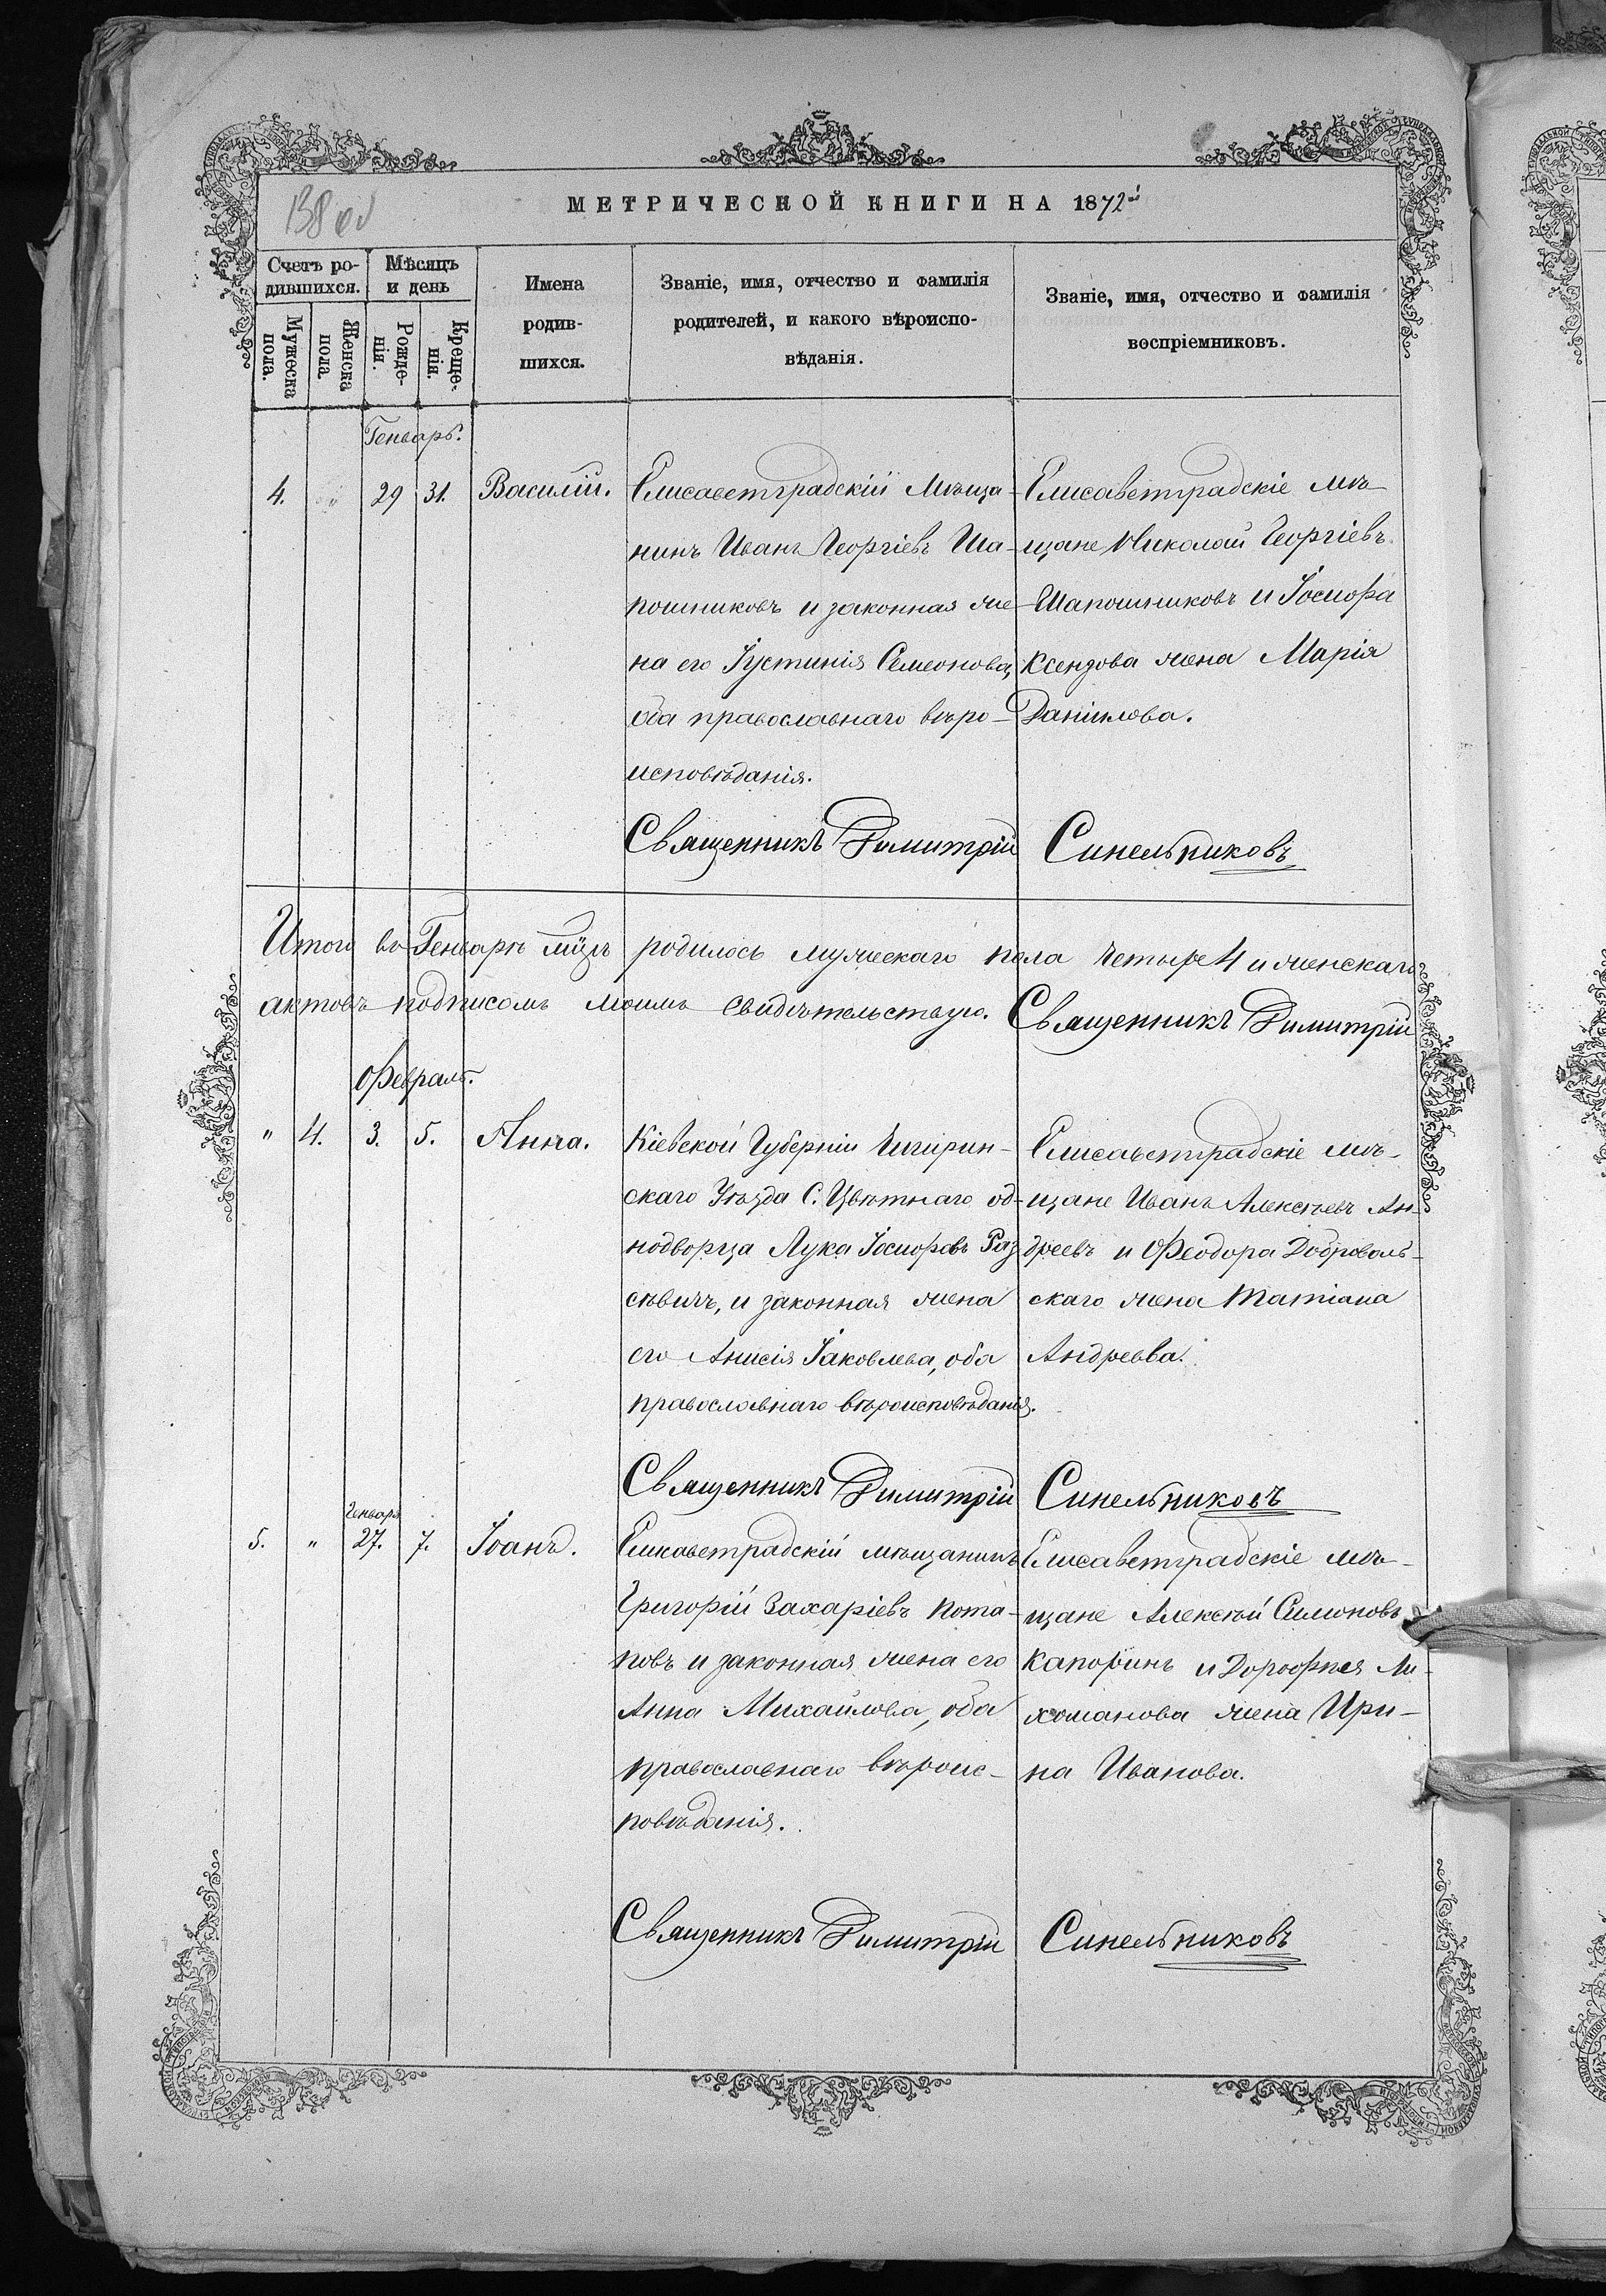 138 об
МЕТРИЧЕСКОЙ КНИГИ НА 1872й
Счетъ ро-
дившихся.
Мужеска
пола.
Женска
пола.
Мѣсяцъ
и день
Рожде-
нія.
Креще-
нія.
Имена
родив-
шихся.
Званіе, имя, отчество и фамилія
родителей, и какого вѣроиспо-
вѣданія.
Званіе, имя, отчество и фамилія
воспріемниковъ.
Генварь.
4. " 29 31. Василій.
Елисаветградскій мѣща-
нинъ Иванъ Георгіевъ Ша-
пошниковъ и законная же-
на его Іустинія Семеонова,
оба православнаго вѣро-
исповѣданія.
Елисаветградскіе мѣ-
щане Николай Георгіевъ
Шапошниковъ и Іосифа
Ксендзова жена Марія
Даніилова.
Священникъ Димитрій Синельниковъ
Итого въ Генварѣ мцѣ родилось мужескаго пола четыре 4 и женскаго
актовъ подписомъ моимъ свидѣтельствую. Священникъ Димитрій
Февраль.
" 4. 3. 5. Анна.
Кіевской Губерніи Чигирин-
скаго Уѣзда С. Цвѣтнаго од-
нодворца Лука Іосифовъ Раз
сѣвичъ, и законная жена
его Анисія Іаковлева, оба
православнаго вѣроисповѣданія.
Елисаветградскіе мѣ-
щане Иванъ Алексѣевъ Ан-
дреевъ и Феодора Доброволь-
скаго жена Татіана
Андреева.
Священникъ Димитрій Синельниковъ
Генваря
5. " 27. 7. Іоанъ.
Елисаветградскій мѣщанинъ
Григорій Захаріевъ Пота-
повъ и законная жена его
Анна Михайлова, оба
православнаго вѣроис-
повѣданія.
Елисаветградскіе мѣ-
щане Алексѣй Симоновъ
Капоринъ и Дорофея Ли-
хоманова жена Ири-
на Иванова.
Священникъ Димитрій Синельниковъ